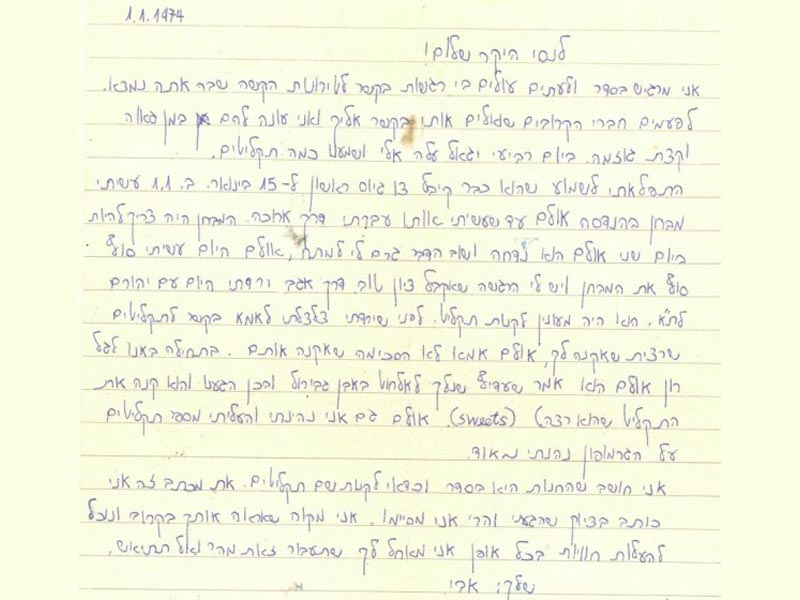 1.1.1974
לנסי היקר שלום!
אני מרגיש בסדר ולעתים עולים בי רגשות בקשר לטירונות הקשה שבה אתה נמצא.
לפעמים חברי הקרובים שואלים אותי בקשר אליך ואני עונה להם במן גאוה
וקצת גוזמה. ביום רביעי יגאל עלה אלי ושמענו כמה תקליטים.
התפלאתי לשמוע שהוא כבר קיבל צו גיוס ראשון ל-15 בינואר. ב. 1.1 עשיתי
מבחן בהנדסה אולם עד שעשיתי אותו עברתי דרך ארוכה. המבחן היה צריך להיות
ביום שני אולם הוא נדחה ושוב הדבר גרם לי למתח, אולם היום עשיתי סוף
סוף את המבחן ויש לי הרגשה שאקבל ציון טוב. דרך אגב ירדתי היום עם יהורם
לת"א. הוא היה מעונין לקנות תקליט. לפני שירדתי צלצלתי לאמא בקשר לתקליטים
שרצית שאקנה לך, אולם אמא לא הסכימה שאקנה אותם. בתחילה באנו לגל
רון אולם הוא אמר שעדיף שנלך לאלתיט באבן גבירול ובכן הגענו והוא קנה את
התקליט שהוא רצה) (sweets). אולם גם אני נהנתי והעליתי מספר תקליטים
על הגרמופון נהנתי מאוד.
אני חושב שהחנות היא בסדר וכדאי לקנות שם תקליטים. את מכתב זה אני
כותב בדיוק שהגעתי והרי אני מסיימו. אני מקוה שאראה אותך בקרוב ונוכל
להעלות חוויות בכל אופן אני מאחל לך שתעבור זאת מהר ואל תתיאש,
שלך: אבי.